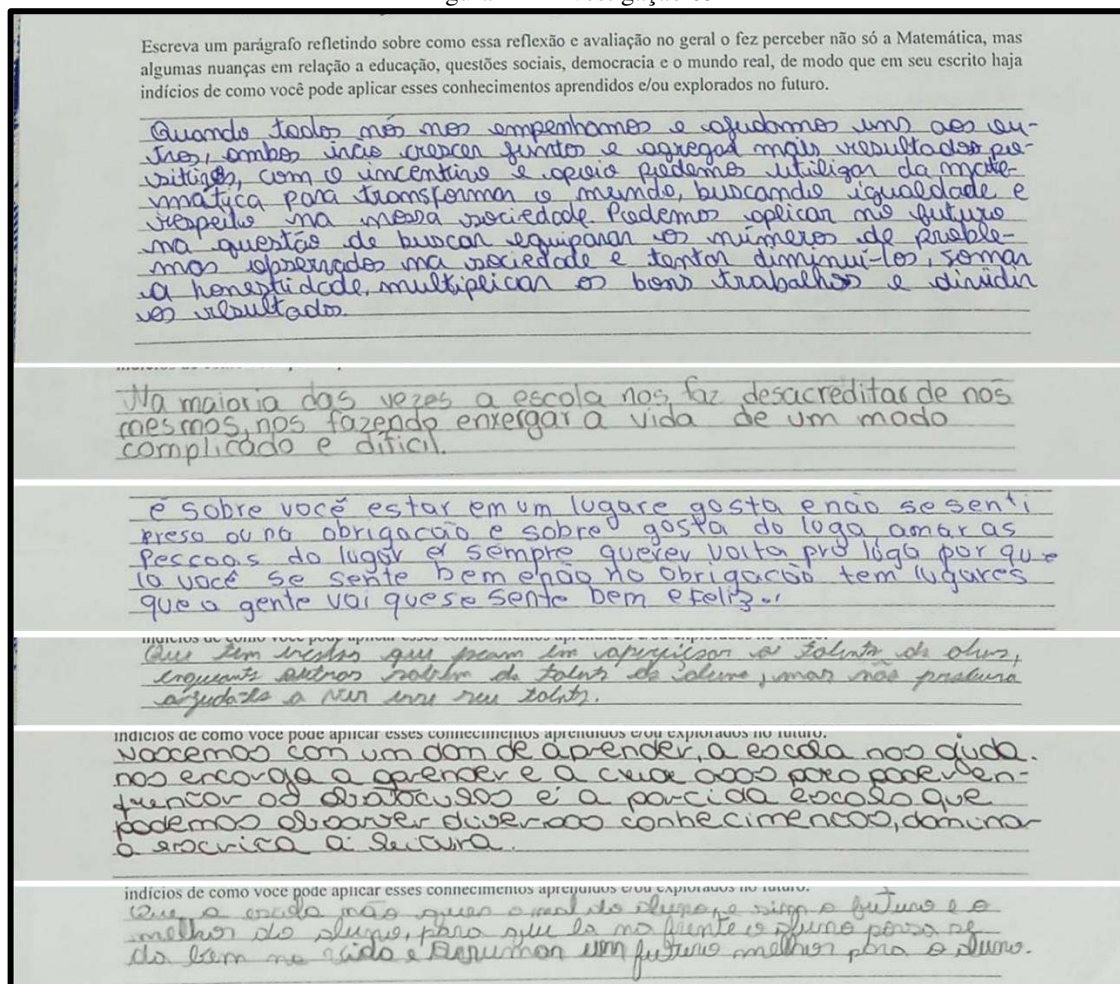 Escreva um parágrafo refletindo sobre como essa reflexão e avaliação no geral o fez perceber não só a Matemática, mas
algumas nuanças em relação a educação, questões sociais, democracia e o mundo real, de modo que em seu escrito haja
indícios de como você pode aplicar esses conhecimentos aprendidos e/ou explorados no futuro.
Quando todos nós nos empenhamos e ajudamos uns aos ou-
tros, ambos irão crescer juntos e agregar mais resultados po-
sitivos, com o incentivo e apoio podemos utilizar da mate-
mática para transformar o mundo, buscando igualdade e
respeito na nossa sociedade. Podemos aplicar no futuro
na questão de buscar equiparar os números de proble-
mas observados na sociedade e tentar diminuí-los, somar
a honestidade, multiplicar os bons trabalhos e dividir
os resultados.
Na maioria das vezes a escola nos faz desacreditar de nós
mesmos, nos fazendo enxergar a vida de um modo
complicado e difícil.
é sobre você estar em um lugar e gosta e não se senti
preso ou na obrigação e sobre gosta do luga amar as
Pessoas do lugar e sempre querer volta pro lúga por que
la você se sente bem e não no obrigação tem lugares
que a gente vai que se sente bem e feliz..
indícios de como você pode aplicar esses conhecimentos aprendidos e/ou explorados no futuro.
Que tem que em o talento do aluno,
enquanto outros do talento do aluno, mas não procura
ajuda-lo a seu talento.
indícios de como você pode aplicar esses conhecimentos aprendidos e/ou explorados no futuro.
Nascemos com um dom de aprender, a escola nos ajuda.
nos encoraja a aprender e a para poder en-
frentar os e a da escola que
podemos diversos conhecimentos, dominar
a escrita a leitura.
indícios de como você pode aplicar esses conhecimentos aprendidos e/ou explorados no futuro.
Que a escola não quer o mal do aluno, e sim o futuro e o
melhor do aluno, para que la na frente o aluno possa se
da bem na vida e Arrumar um futuro melhor para o aluno.